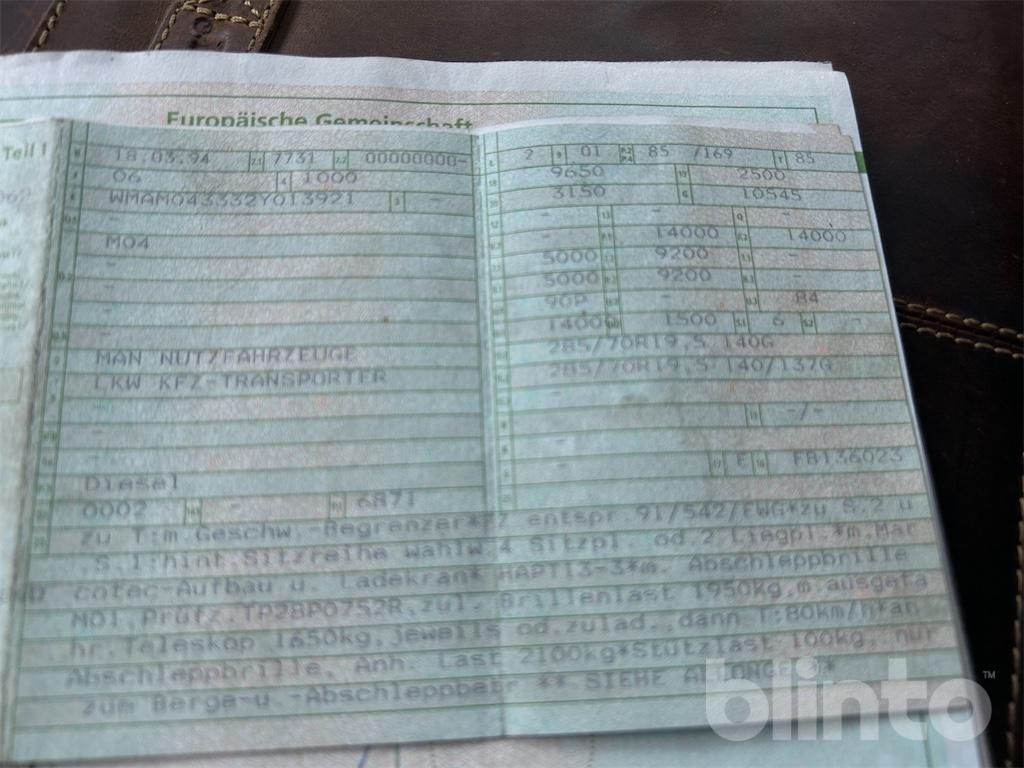 Europäische Gemeinschaft
Teil I
18.03.94 7731 00000000-
06 1000
WMAM043332Y013921 -
-
M04
-
-
-
-
MAN NUTZFAHRZEUGE
LKW KFZ-TRANSPORTER
-
-
-
-
Diesel
0002 - 6871
2 01 85 /169 85
9650 2500
3150 10545
- - -
- 14000 14000
5000 9200 -
5000 9200 -
90P - 84
14000 1500 6 -
285/70R19,5 140G
285/70R19,5 140/137G
-
- -/-
-
- E FB136023
zu T:m.Geschw.-Begrenzer*FZ entspr.91/542/EWG*zu S.2 u
.S.1:hint.Sitzreihe wahlw.4 Sitzpl. od.2 Liegpl.*m.Mar
cotec-Aufbau u. Ladekran* HAP113-3*m. Abschleppbrille
M01,Prüfz.TP28P0752R,zul. Brillenlast 1950kg,m.ausgefa
hr.Teleskop 1650kg,jeweils od.zulad.,dann T:80km/h*an
Abschleppbrille, Anh. Last 2100kg*Stützlast 100kg, nur
zum Berge-u.-Abschleppbetr ** SIEHE
blinto™